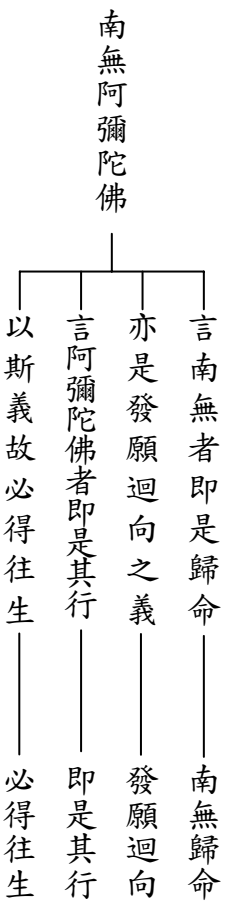 南無阿彌陀佛
言南無者即是歸命
南無歸命
亦是發願迴向之義
發願迴向
言阿彌陀佛者即是其行
即是其行
以斯義故必得往生
必得往生